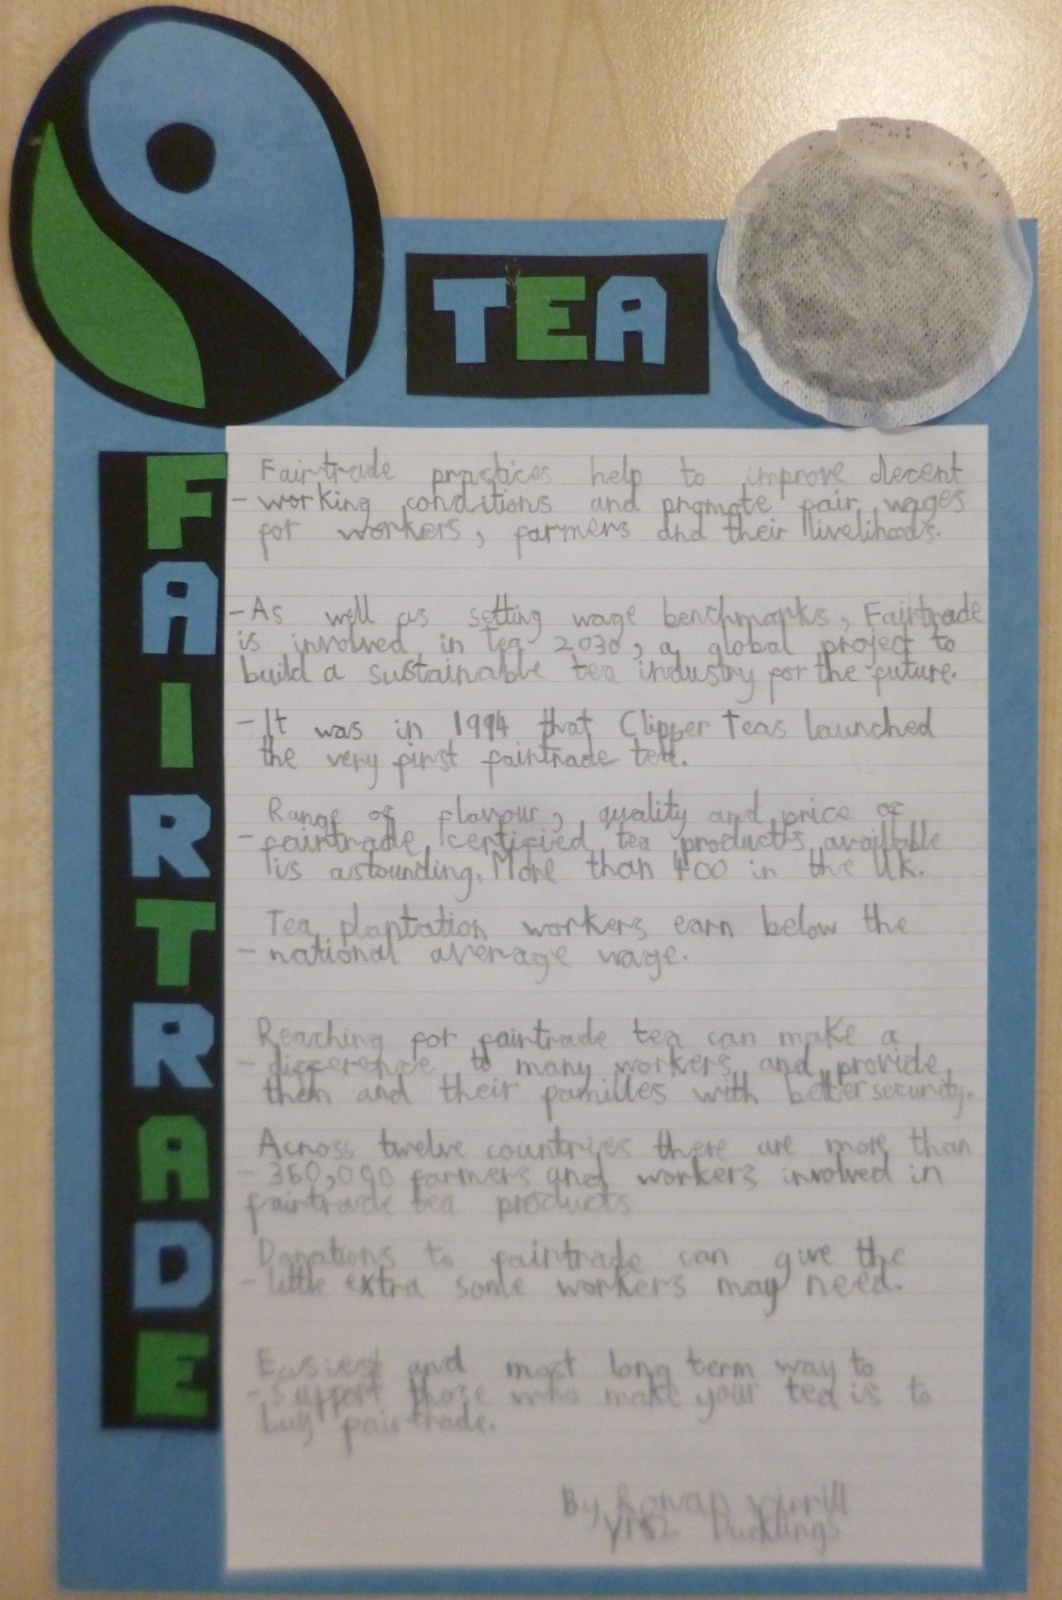 TEA
FAIRTRADE
Fairtrade practices help to improve decent
- working conditions and promote fair wages
for workers, farmers and their livelihoods.
- As well as setting wage benchmarks, Fairtrade
is involved in tea 2030, a global project to
build a sustainable tea industry for the future.
- It was in 1994 that Clipper Teas launched
the very first fairtrade tea.
Range of flavour, quality and price of
- fairtrade certified tea products available
is astounding. More than 400 in the UK.
Tea plantation workers earn below the
- national average wage.
Reaching for fairtrade tea can make a
- difference to many workers and provide
them and their families with better security.
Across twelve countries there are more than
- 360,000 farmers and workers involved in
fairtrade tea products
Donations to fairtrade can give the
- little extra some workers may need.
Easiest and most long term way to
- support those who make your tea is to
buy fairtrade.
By Rowan
Ducklings